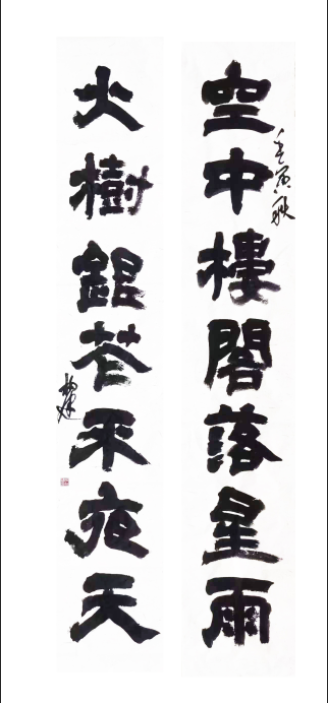 壬寅秋
空中樓閣落星雨
火樹銀花不夜天